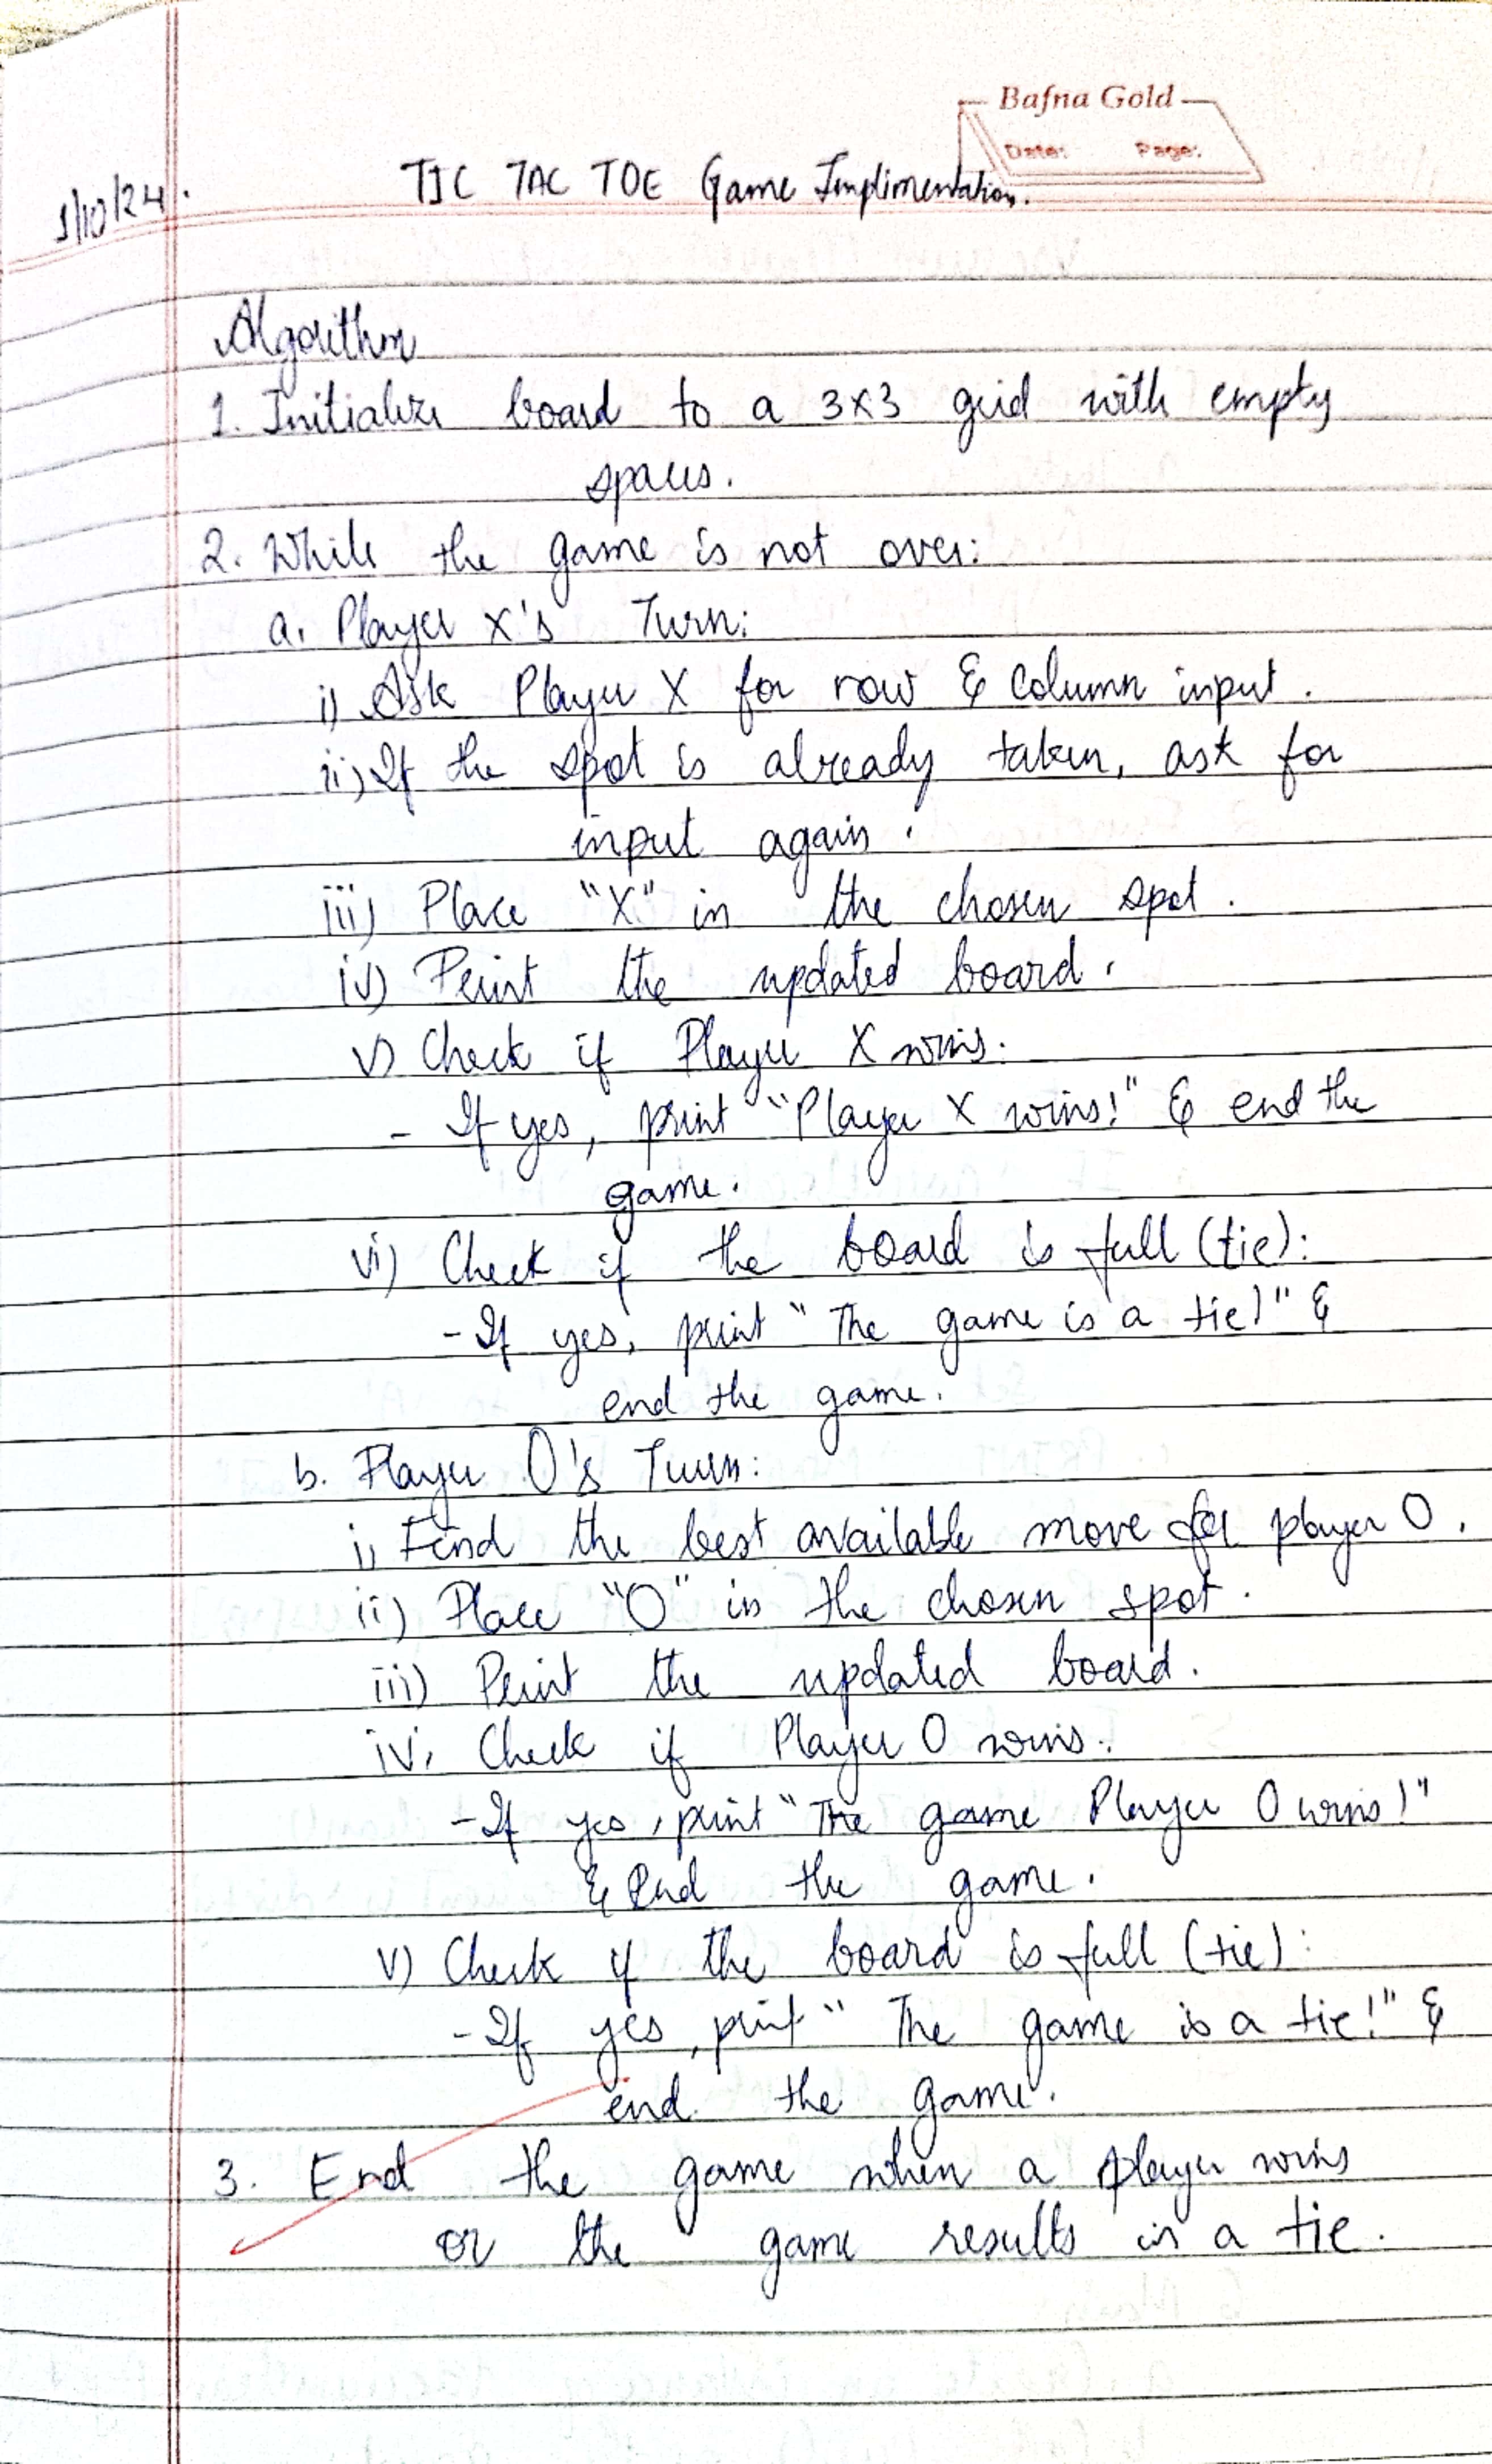 Bafna Gold
Date: Page:
1/10/24.
TIC TAC TOE Game Implimentation.
Algorithm
1. Initialize board to a 3x3 grid with empty
spaces.
2. While the game is not over:
a. Player X's Turn:
i) Ask Player X for row & Column input.
ii) If the spot is already taken, ask for
input again.
iii) Place "X" in the chosen spot.
iv) Print the updated board.
v) Check if Player X wins.
- If yes, print "Player X wins!" & end the
game.
vi) Check if the board is full (tie):
- If yes, print "The game is a tie!" &
end the game.
b. Player O's Turn:
i) Find the best available move for player O.
ii) Place "O" in the chosen spot.
iii) Print the updated board.
iv. Check if Player O wins.
- If yes, print "The game Player O wins!"
& End the game.
v) Check if the board is full (tie):
- If yes, print "The game is a tie!" &
end the game.
3. End the game when a player wins
or the game results in a tie.